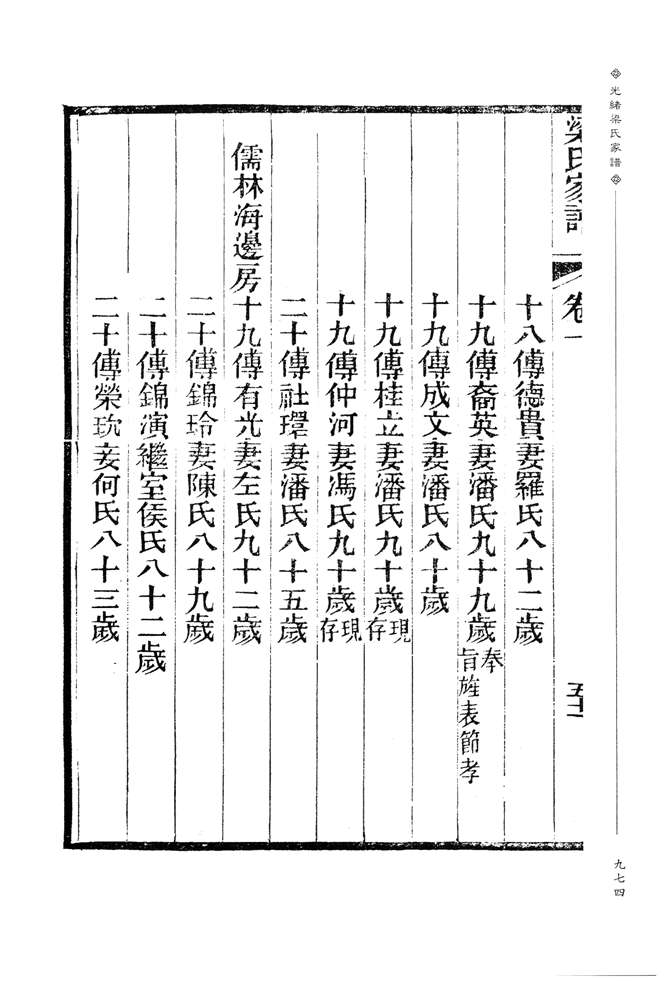 光緒梁氏家譜
梁氏家譜
卷一
十八傳德貴妻羅氏八十二歲
十九傳裔英妻潘氏九十九歲奉旨旌表節孝
十九傳成文妻潘氏八十歲
十九傳桂立妻潘氏九十歲現存
十九傳仲河妻馮氏九十歲現存
二十傳社環妻潘氏八十五歲
儒林海邊房十九傳有光妻左氏九十二歲
二十傳錦玲妻陳氏八十九歲
二十傳錦演繼室侯氏八十二歲
二十傳榮玧妾何氏八十三歲
九七四